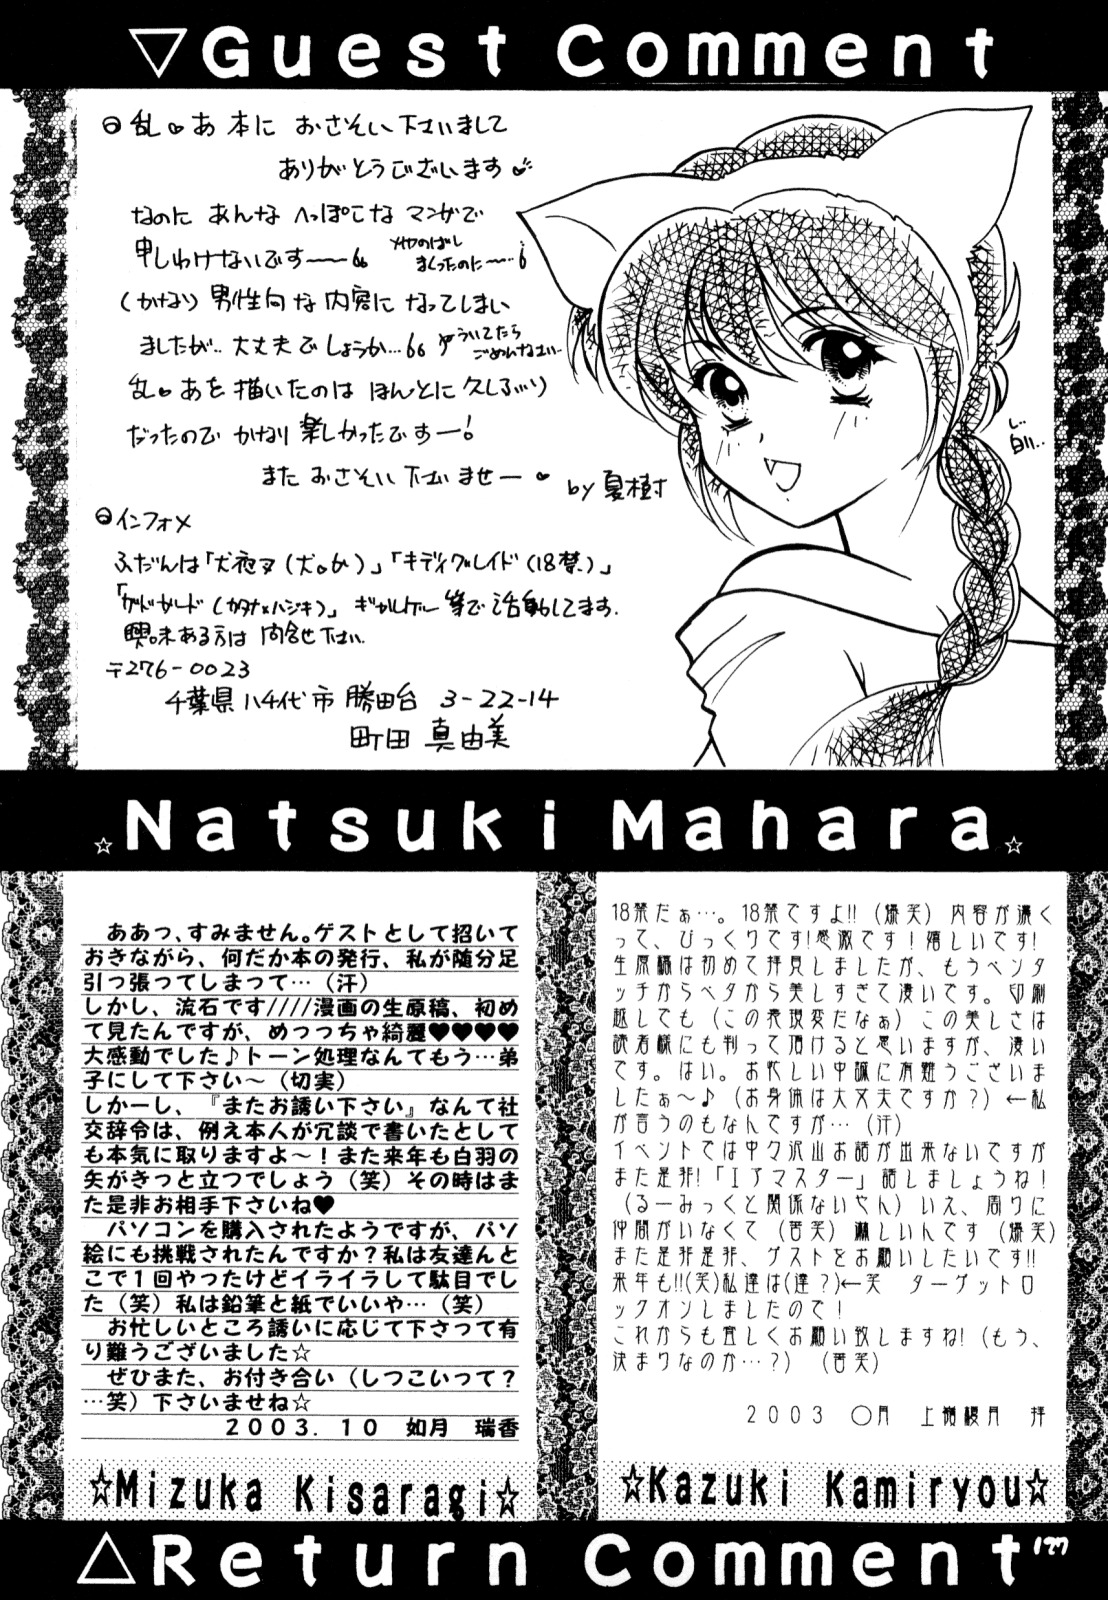 ▽Guest Comment
乱♥あ 本に おさそい下さいまして
ありがとうございます♥
なのに あんな へっぽこな マンガで
申しわけないです〜〜
メやのばし
まくったのに〜…
(かなり) 男性向な 内容に なってしまい
ましたが.. 大丈夫でしょうか…
ういてたら
ごめんなさい…
乱♥あを 描いたのは ほんとに 久しぶり
だったので かなり 楽しかったですー!
また おさそい 下さい ませー♥
by 夏樹
し…
白い…
インフォメ
ふだんは「犬夜叉(犬。か)」「キディグレイド(18禁)」
ギャルゲー 等で 活動してます.
興味ある方は 問合せ下さい.
〒276-0023
千葉県 八千代市 勝田台 3-22-14
町田 真由美
☆Natsuki Mahara☆
ああっ、すみません。ゲストとして招いて
おきながら、何だか本の発行、私が随分足
引っ張ってしまって…(汗)
しかし、流石です////漫画の生原稿、初め
て見たんですが、めっつちゃ綺麗♥♥♥♥
大感動でした♪トーン処理なんてもう…弟
子にして下さい〜(切実)
しかーし、『またお誘い下さい』なんて社
交辞令は、例え本人が冗談で書いたとして
も本気に取りますよ〜！また来年も白羽の
矢がきっと立つでしょう(笑)その時はま
た是非お相手下さいね♥
パソコンを購入されたようですが、パソ
絵にも挑戦されたんですか？私は友達んと
こで１回やったけどイライラして駄目でし
た(笑)私は鉛筆と紙でいいや…(笑)
お忙しいところ誘いに応じて下さって有
り難うございました☆
ぜひまた、お付き合い(しつこいって？
…笑)下さいませね☆
２００３．１０　如月　瑞香
☆Mizuka Kisaragi☆
18禁だぁ…。18禁ですよ!!(爆笑)内容が濃く
って、びっくりです!感激です！嬉しいです!
生原稿は初めて拝見しましたが、もうペンタ
ッチからベタから美しすぎて凄いです。印刷
越しても(この表現変だなぁ)この美しさは
読者様にも判って頂けると思いますが、凄い
です。はい。お忙しい中誠に有難うございま
したぁ〜♪(お身体は大丈夫ですか？)←私
が言うのもなんですが…(汗)
イベントでは中々沢山お話が出来ないですが
また是非!「エアマスター」話しましょうね！
(るーみっくと関係ないやん)いえ、周りに
仲間がいなくて(苦笑)淋しいんです(爆笑)
また是非是非、ゲストをお願いしたいです!!
来年も!!(笑)私達は(達？)←笑　ターゲットロ
ックオンしましたので！
これからも宜しくお願い致しますね!(もう、
決まりなのか…？)(苦笑)
２００３　〇月　上嶺櫻月　拝
☆Kazuki Kamiryou☆
△Return Comment
127